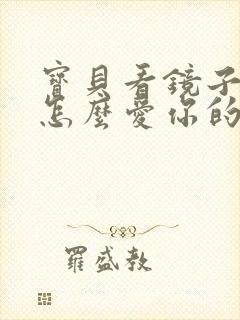 寶貝看鏡子
怎麼愛你的
羅盛教